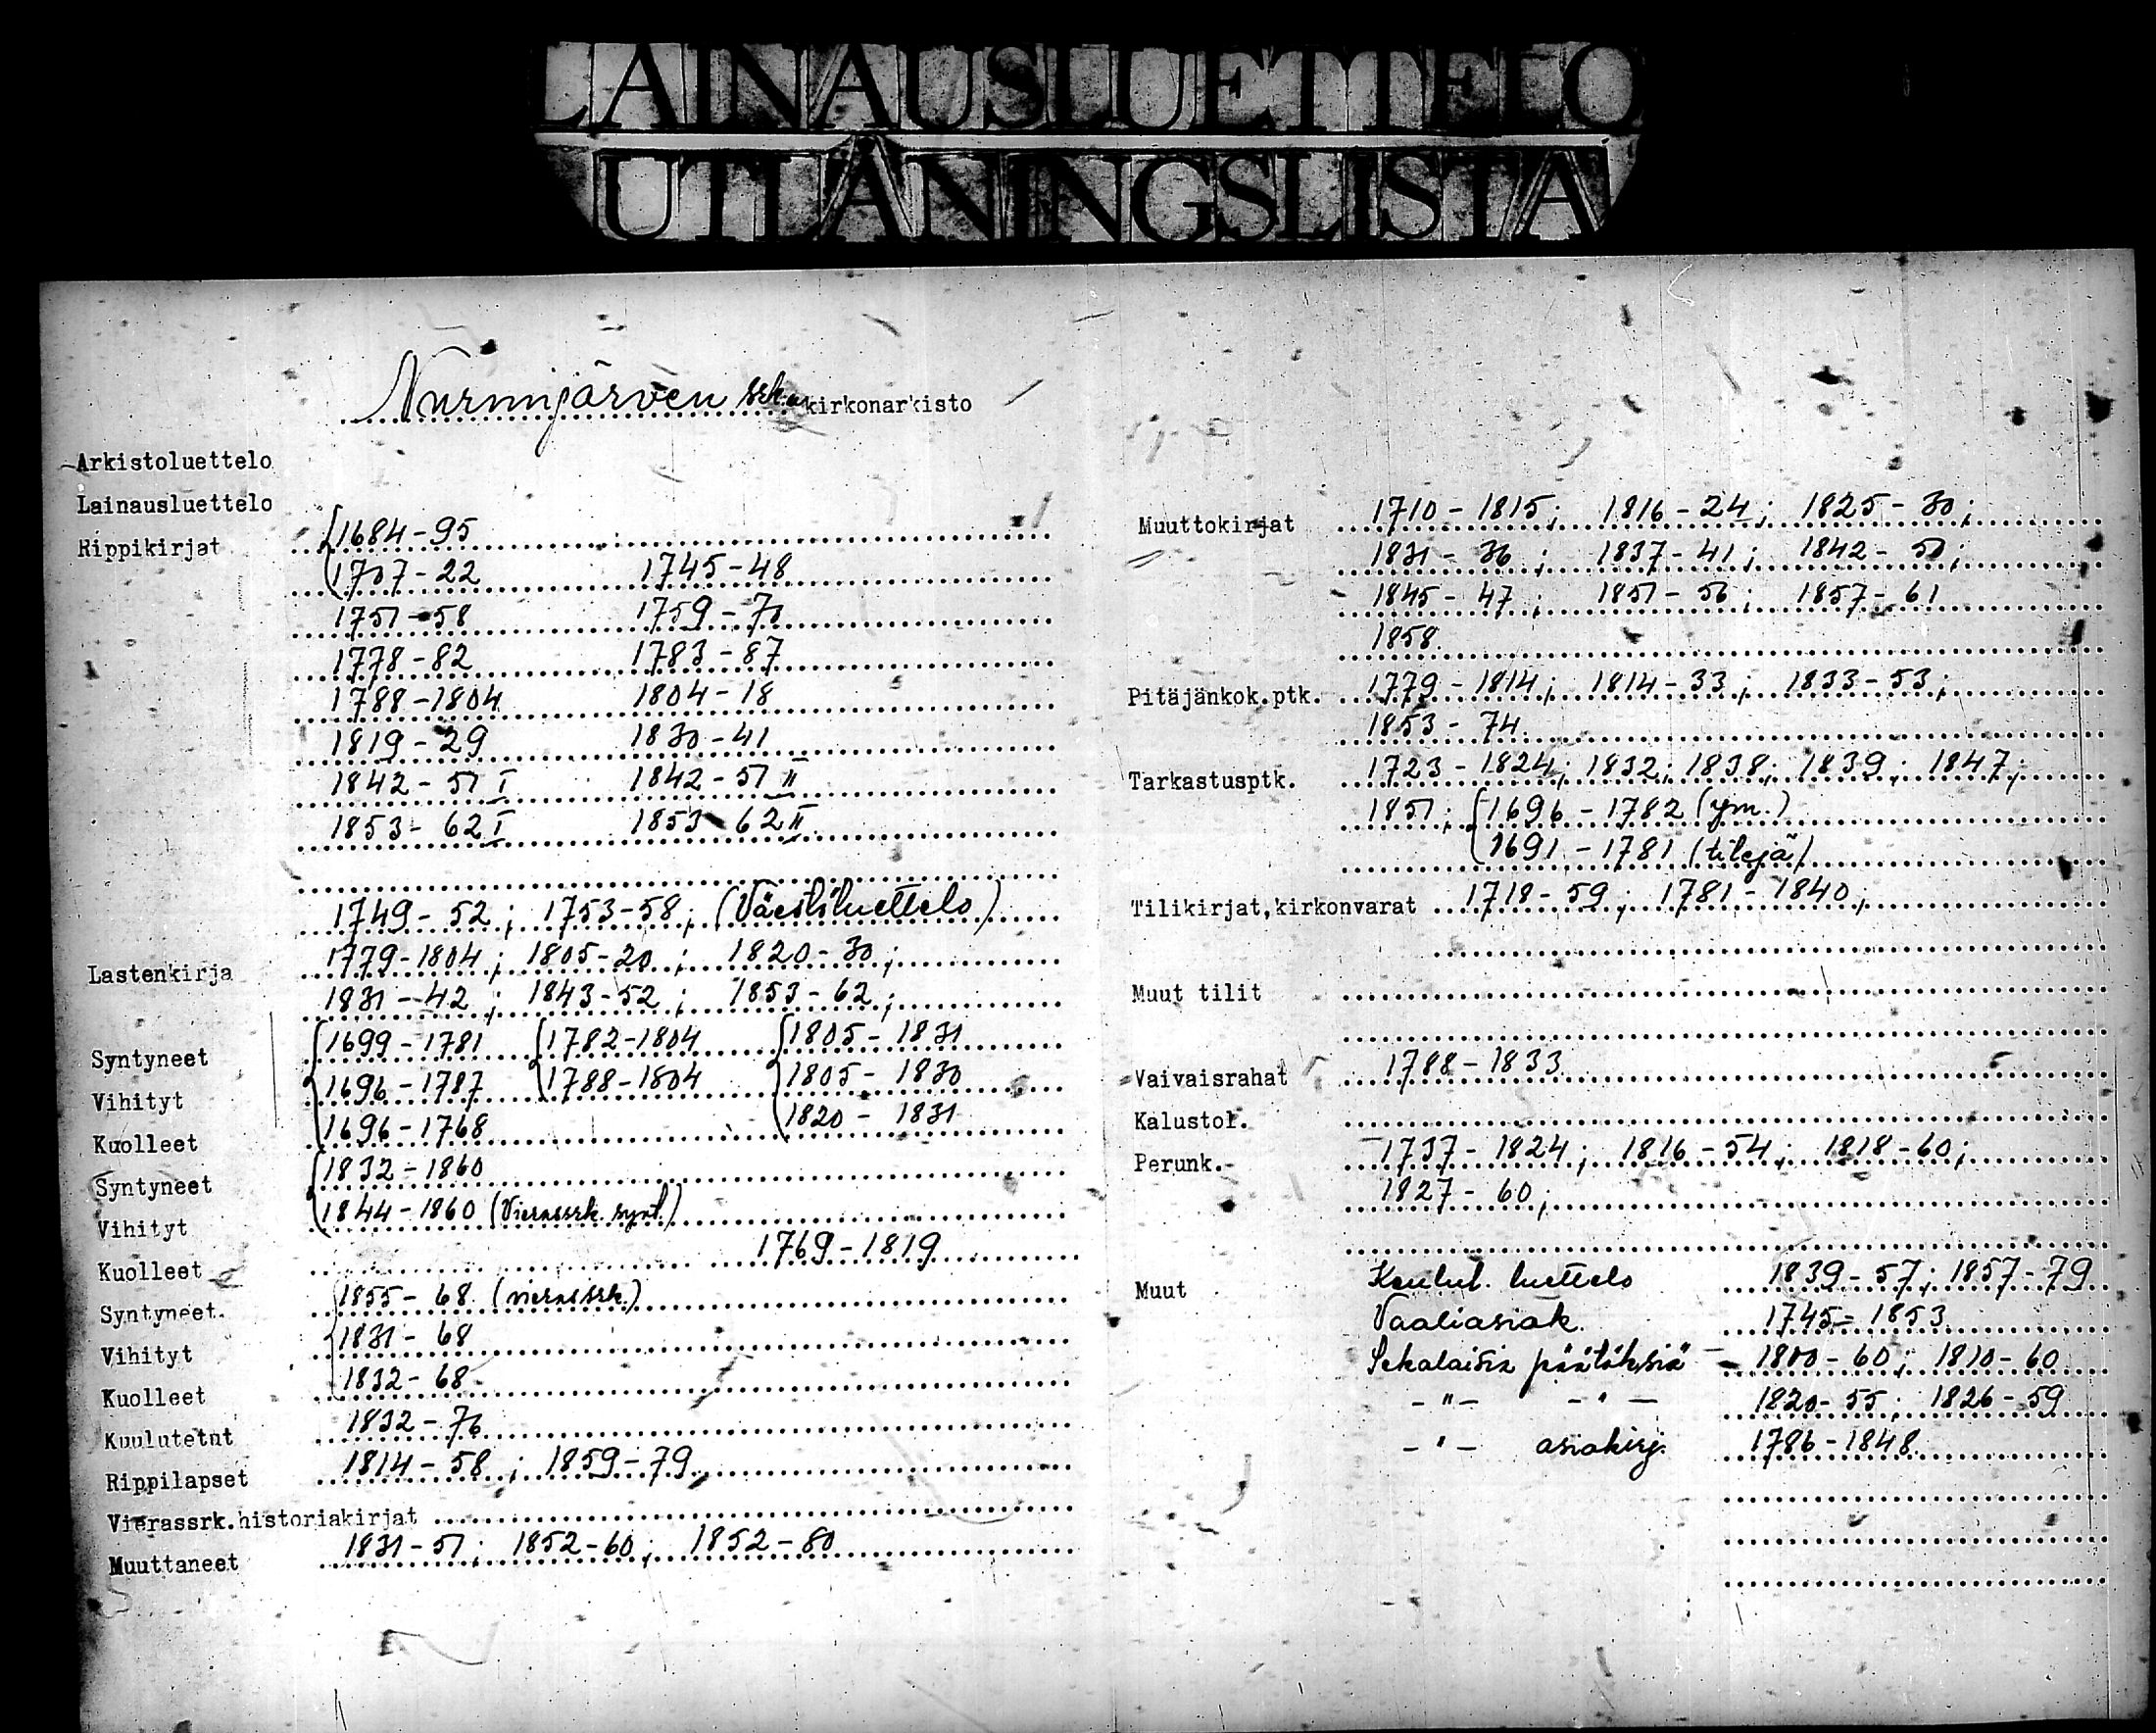 LAINAUSLUETTELO
UTLÅNINGSLISTA
Nurmijärven srk:n kirkonarkisto
Arkistoluettelo
Lainausluettelo
Rippikirjat 1684-95
1707-22 1745-48
1751-58 1759-70
1778-82 1783-87
1788-1804 1804-18
1819-29 1830-41
1842-51 I 1842-51 II
1853-62 I 1853-62 II
1749-52; 1753-58; (Väestöluettelo)
Lastenkirja 1779-1804; 1805-20; 1820-30;
1831-42; 1843-52; 1853-62;
Syntyneet 1699-1781 1782-1804 1805-1831
Vihityt 1696-1787 1788-1804 1805-1830
Kuolleet 1696-1768 1820-1831
Syntyneet 1832-1860
Vihityt 1844-1860 (Vierassrk. synt.)
Kuolleet 1769-1819
Syntyneet 1855-68 (vierassrk.)
Vihityt 1831-68
Kuolleet 1832-68
Kuulutetut 1832-76
Rippilapset 1814-58; 1859-79
Vierassrk.historiakirjat
Muuttaneet 1831-51; 1852-60; 1852-80
Muuttokirjat 1710-1815; 1816-24; 1825-30;
1831-36; 1837-41; 1842-50;
1845-47; 1851-56; 1857-61
1858
Pitäjänkok.ptk. 1779-1814; 1814-33; 1833-53;
1853-74
Tarkastusptk. 1723-1824; 1832; 1838; 1839; 1847;
1851; 1696-1782 (ym.)
1691-1781 (tilejä)
Tilikirjat,kirkonvarat 1718-59; 1781-1840;
Muut tilit
Vaivaisrahat 1788-1833
Kalustol.
Perunk. 1737-1824; 1816-54; 1818-60;
1827-60;
Muut Kuulut. luettelo 1839-57; 1857-79
Vaaliasiak. 1745-1853
Sekalaisia päätöksiä - 1800-60; 1810-60
-"- -"- 1820-55; 1826-59
-"- asiakirj. 1786-1848